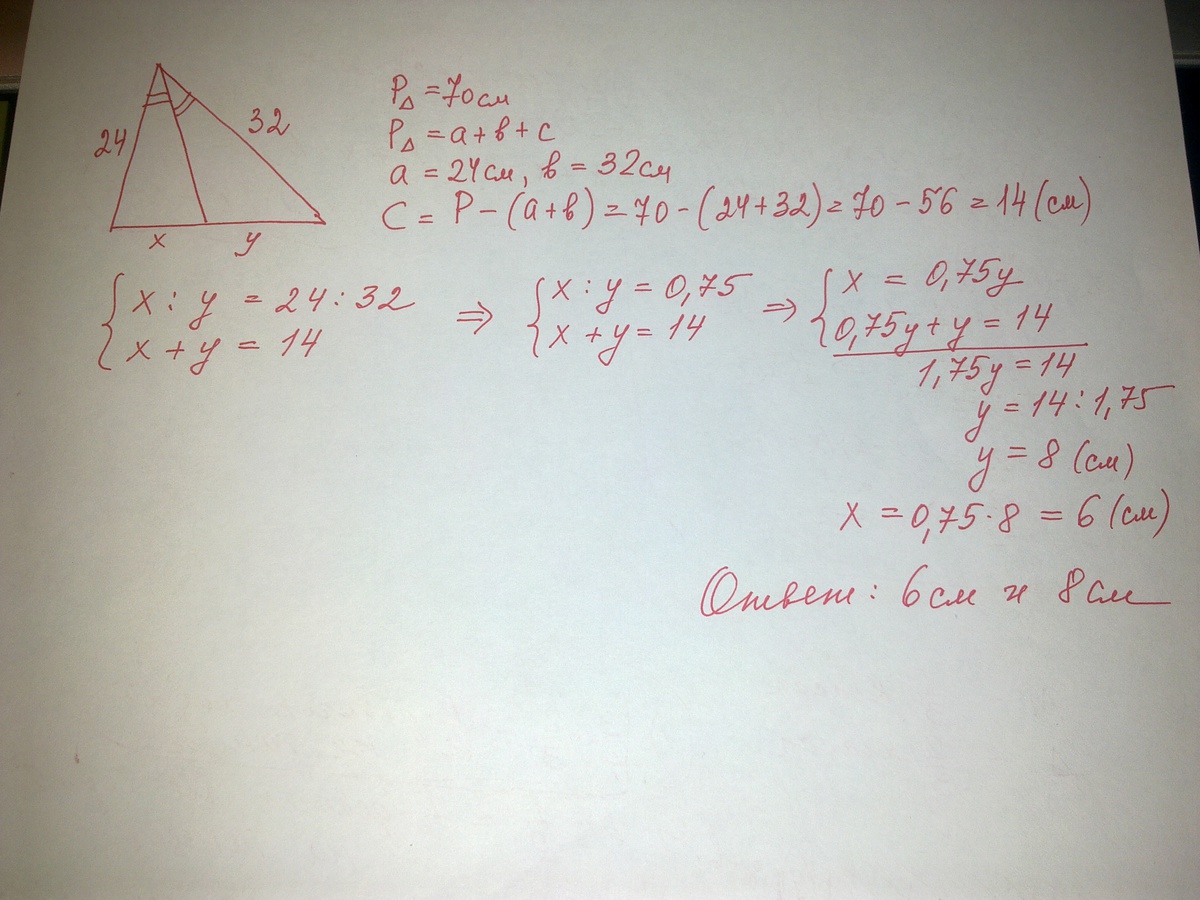 24
32
x
y
P△ = 70 см
P△ = a + в + c
a = 24 см, в = 32 см
C = P − (a + в) = 70 − (24 + 32) = 70 − 56 = 14 (см)
{ x : y = 24 : 32
x + y = 14
⇒
{ x : y = 0,75
x + y = 14
⇒
{ x = 0,75y
0,75y + y = 14
1,75y = 14
y = 14 : 1,75
y = 8 (см)
x = 0,75 · 8 = 6 (см)
Ответ: 6 см и 8 см